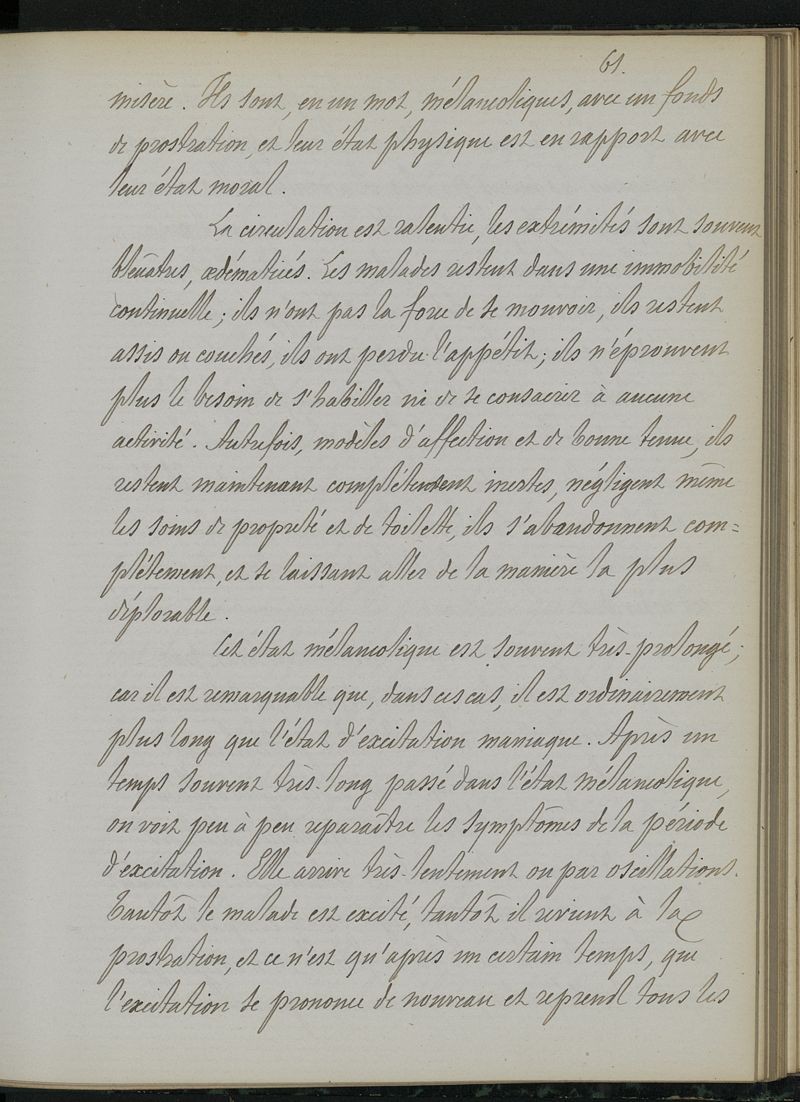 61.
misère. Ils sont, en un mot, mélancoliques, avec un fonds
de prostration, et leur état physique est en rapport avec
leur état moral.
La circulation est ralentie, les extrémités sont souvent
bleuâtres, œdématiés. Les malades restent dans une immobilité
continuelle; ils n'ont pas la force de se mouvoir, ils restent
assis ou couchés, ils ont perdu l'appétit; ils n'éprouvent
plus le besoin de s'habiller ni de se consacrer à aucune
activité. Autrefois, modèles d'affection et de bonne tenue, ils
restent maintenant complétement inertes, négligent même
les soins de propreté et de toilette, ils s'abandonnent com=
plétement, et se laissant aller de la manière la plus
déplorable.
Cet état mélancolique est souvent très-prolongé;
car il est remarquable que, dans ces cas, il est ordinairement
plus long que l'état d'excitation maniaque. Après un
temps souvent très-long passé dans l'état mélancolique,
on voit peu à peu reparaître les symptômes de la période
d'excitation. Elle arrive très-lentement ou par oscillations.
Tantôt le malade est excité, tantôt il revient à la
prostration, et ce n'est qu'après un certain temps, que
l'excitation se prononce de nouveau et reprend tous les